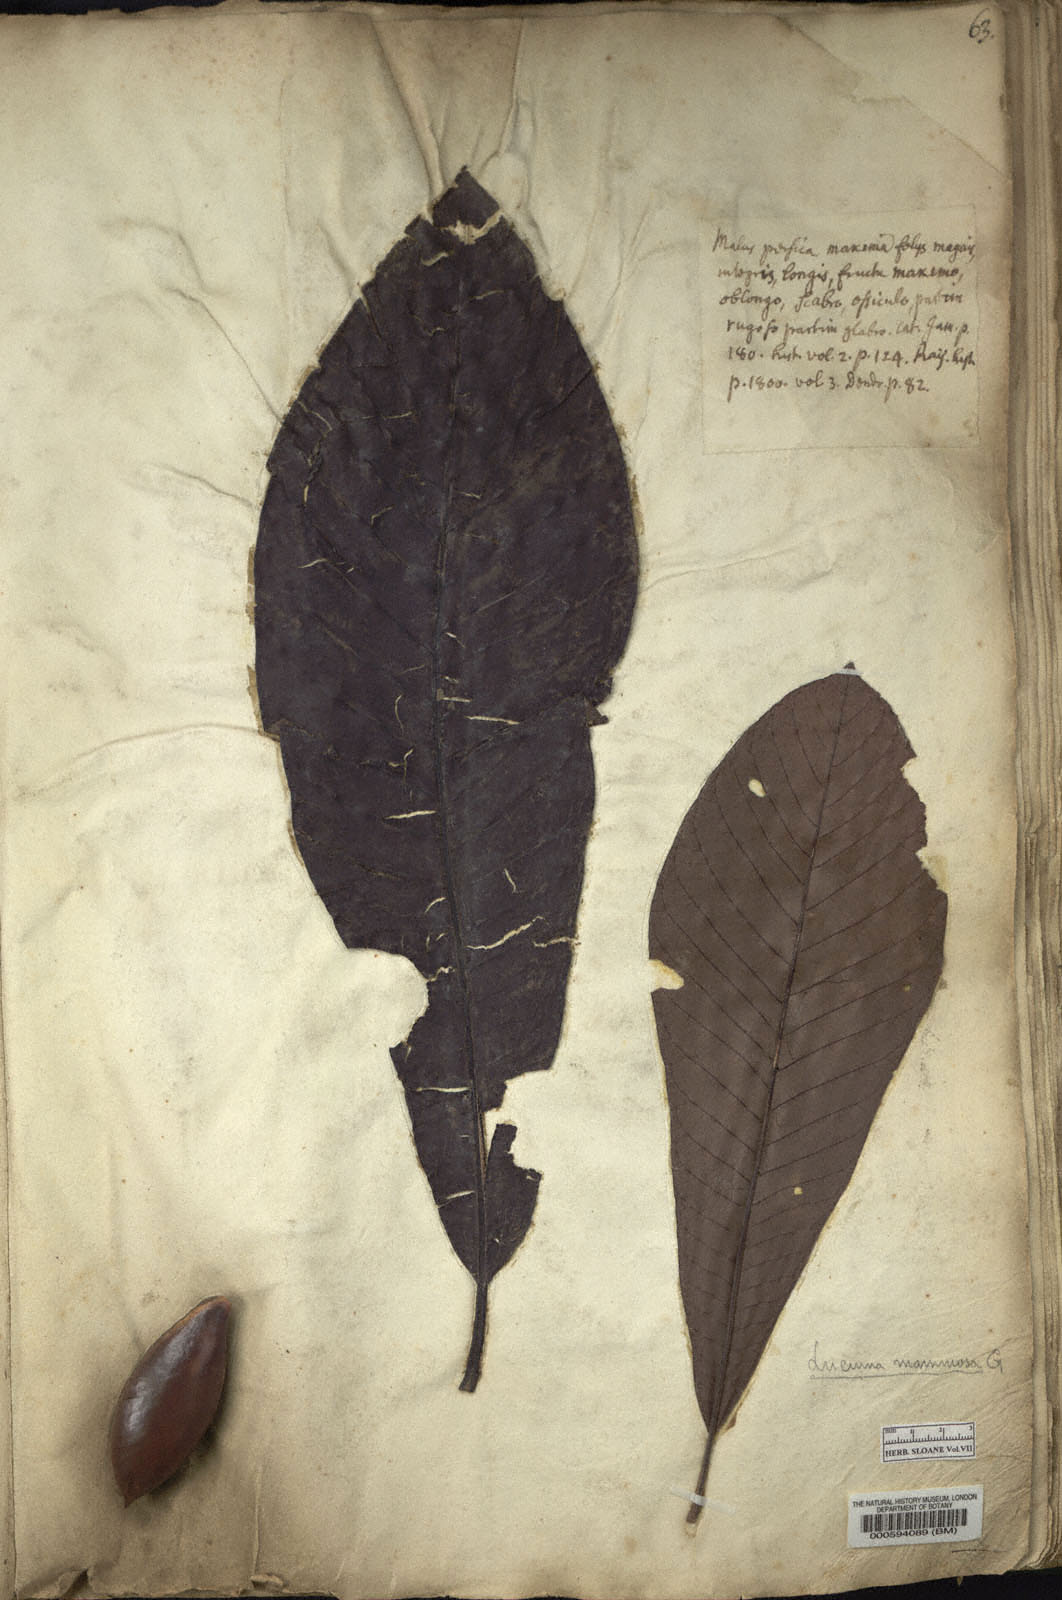 63.
Malus persica maxima folys magnis,
integris, longis, fructu maximo,
oblongo, scabro, ossiculo, partim
rugoso partim glabro. Cat. Jam. p.
180. hist. vol. 2. p. 124. Raij. hist.
p. 1800. vol. 3. Dendr. p. 82.
Lucuma mammosa G
1 2 3
HERB. SLOANE Vol.VII
THE NATURAL HISTORY MUSEUM, LONDON
DEPARTMENT OF BOTANY
000594089 (BM)